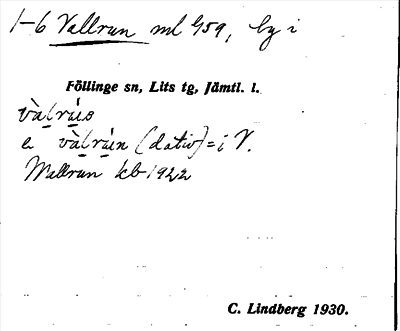 1-6 Vallrun ml 459, by i
Föllinge sn, Lits tg, Jämtl. l.
vàlrúo
e vàlrún (dativ) = i V.
Wallrun kb 1922
C. Lindberg 1930.